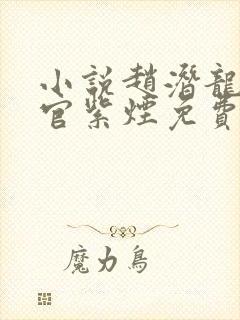 小說趙潛龍
官紫煙免費
魔力鳥